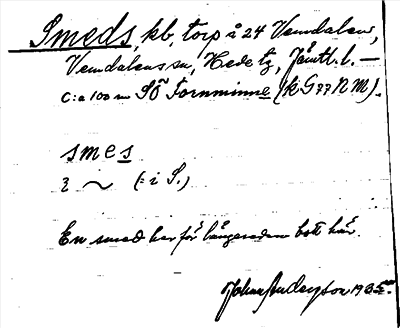 Smeds, kb, torp å 24 Vemdalen,
Vemdalens sn, Hede tg, Jämtl. l. —
C:a 100 m SÖ Fornminne (k G 77 N M).
smes
2 ~ (= i S.)
En smed har för länge sedan bott här.
Johan Anderson 1935.